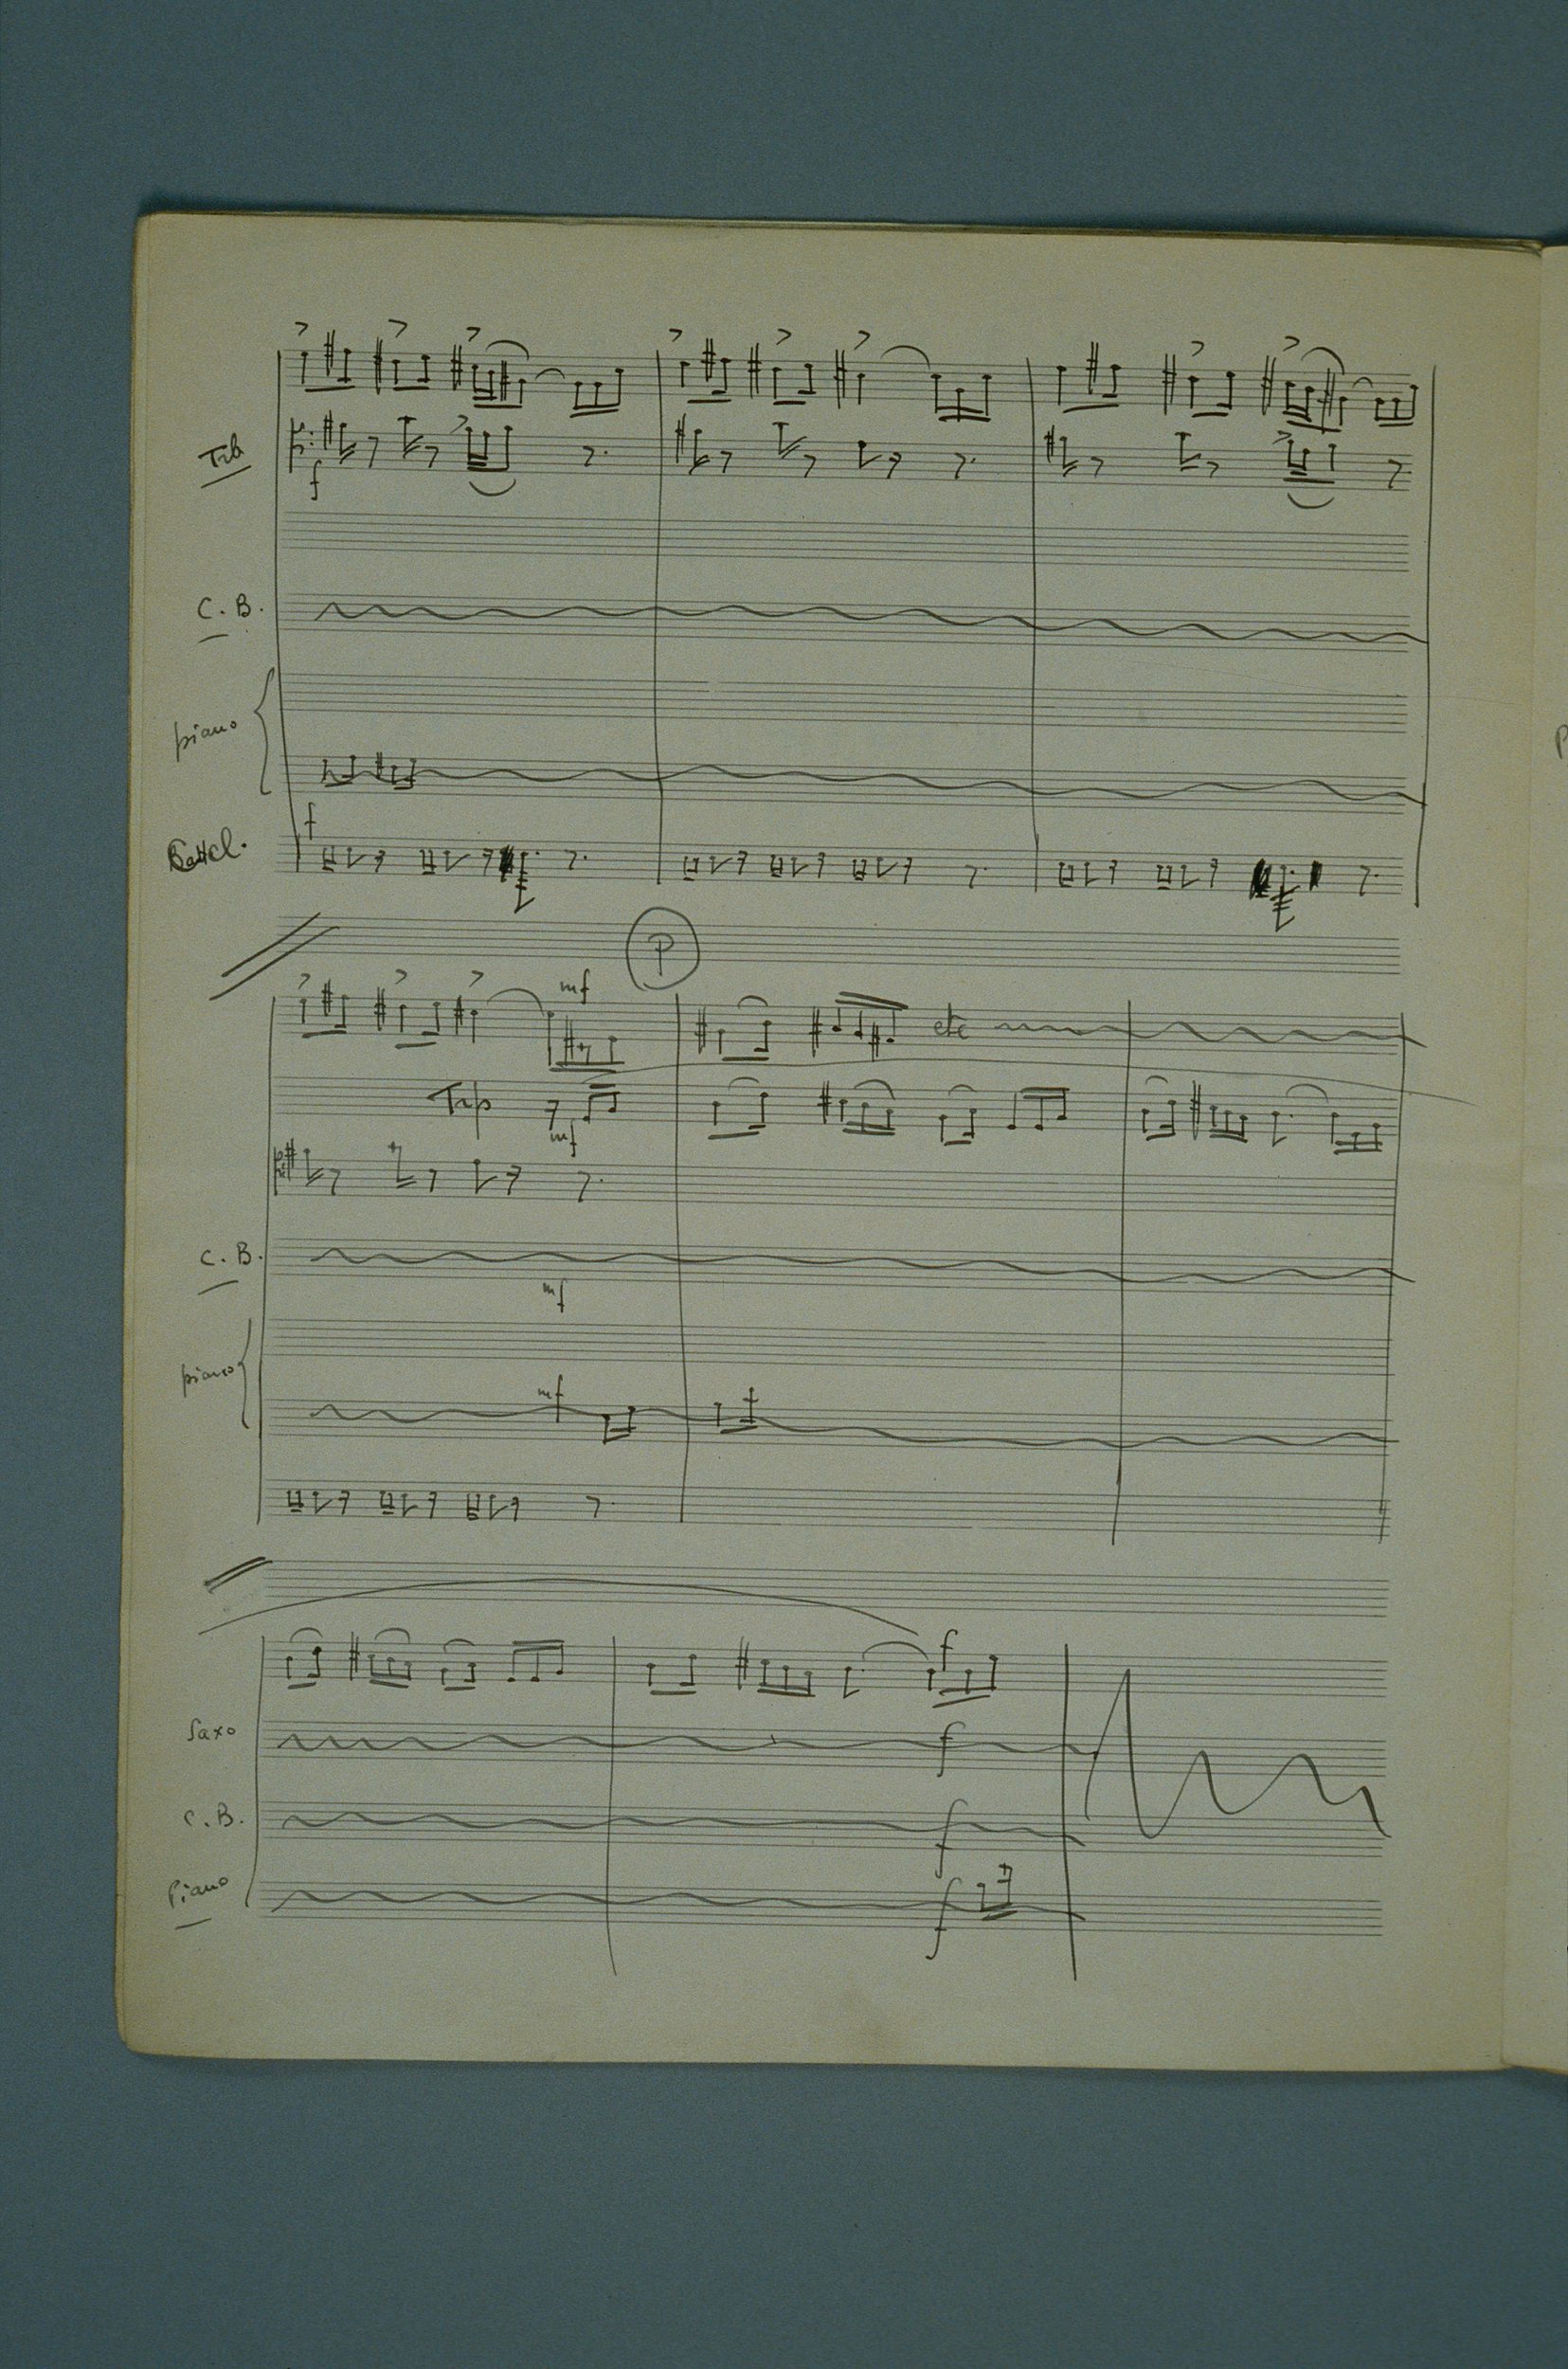 Trb
f
C. B.
piano
f
Batt.
P
mf
etc
Trp
mf
C. B.
mf
piano
mf
f
Saxo
f
C. B.
f
Piano
f